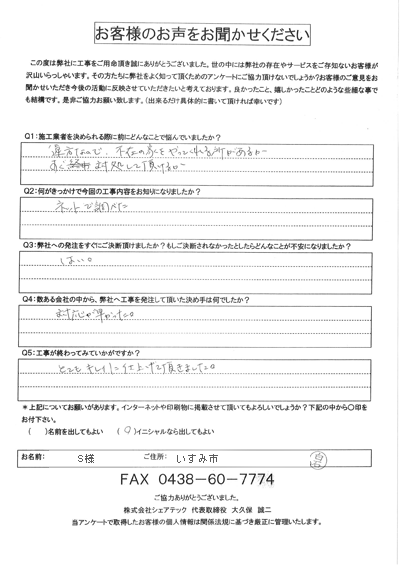 お客様のお声をお聞かせください
この度は弊社に工事をご用命頂き誠にありがとうございました。世の中には弊社の存在やサービスをご存知ないお客様が
沢山いらっしゃいます。その方たちに弊社をよく知って頂くためのアンケートにご協力頂けないでしょうか?お客様のご意見をお
聞かせいただき今後の活動に反映させていただきたいと考えております。良かったこと、嬉しかったことどのような些細な事で
も結構です。是非ご協力お願い致します。(出来るだけ具体的に書いて頂ければ幸いです)
Q1:施工業者を決められる際に前にどんなことで悩んでいましたか?
遠方なので、不在の家をやってくれる所があるか
対処して頂けるか
Q2:何がきっかけで今回の工事内容をお知りになりましたか?
ネットで調べた
Q3:弊社への発注をすぐにご決断頂けましたか?もしご決断されなかったとしたらどんなことが不安になりましたか?
はい。
Q4:数ある会社の中から、弊社へ工事を発注して頂いた決め手は何でしたか?
対応が早かった。
Q5:工事が終わってみていかがですか?
とてもキレイに仕上げて頂きました。
*上記についてお願いがあります。インターネットや印刷物に掲載させて頂いてもよろしいでしょうか?下記の中から〇印を
お付下さい。
( )名前を出してもよい (○)イニシャルなら出してもよい
お名前: S様 ご住所: いすみ市
FAX 0438-60-7774
ご協力ありがとうございました。
株式会社シェアテック 代表取締役 大久保 誠二
当アンケートで取得したお客様の個人情報は関係法規に基づき厳正に管理いたします。